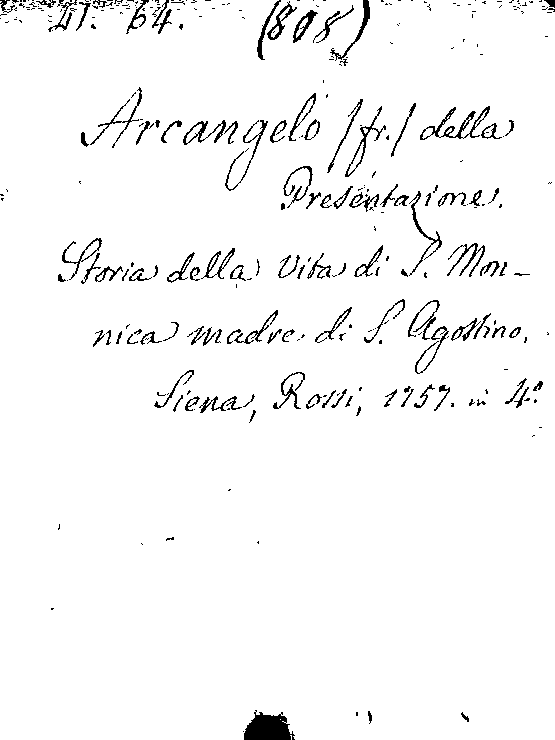 21. 64. (808)
Arcangelo /fr./ della
Presentazione.
Storia della Vita di S. Mon-
nica madre di S. Agostino.
Siena, Rossi, 1757. in 4.º